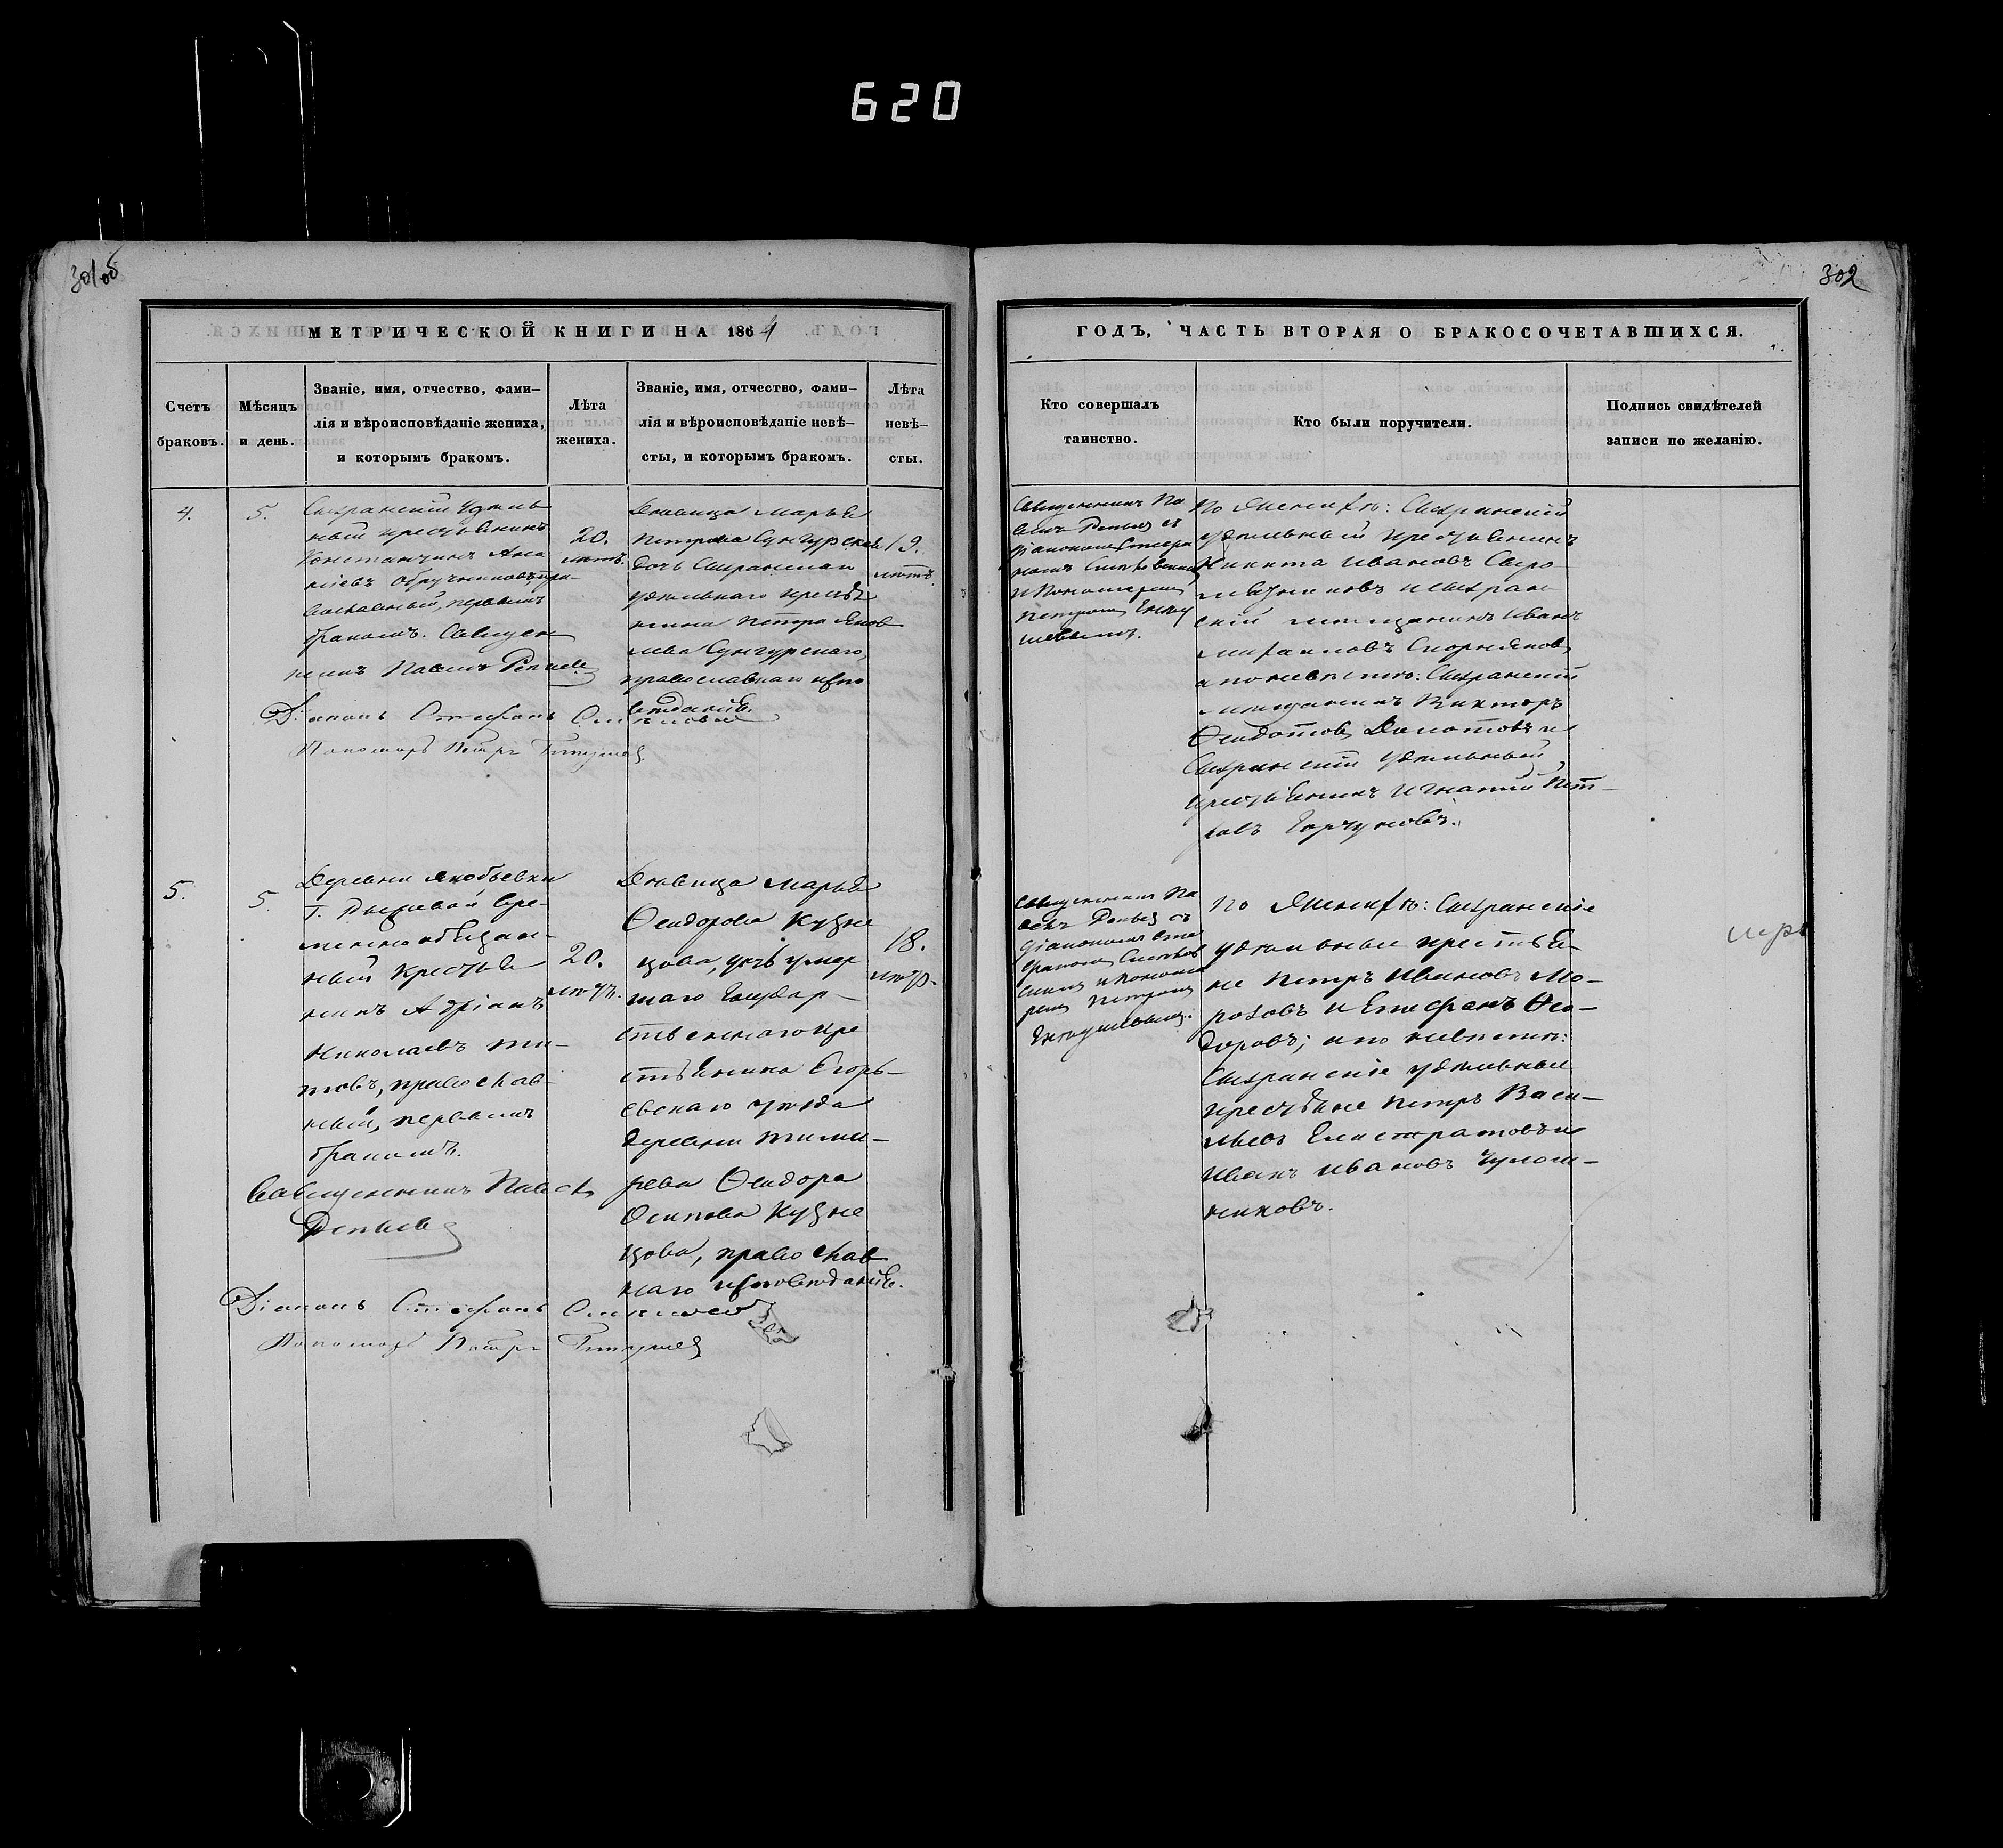 620
301об
302
МЕТРИЧЕСКОЙ КНИГИ НА 1864
ГОДЪ, ЧАСТЬ ВТОРАЯ О БРАКОСОЧЕТАВШИХСЯ.
Счетъ
браковъ.
Мѣсяцъ
и день.
Званіе, имя, отчество, фами–
лія и вѣроисповѣданіе жениха,
и которымъ бракомъ.
Лѣта
жениха.
Званіе, имя, отчество, фами–
лія и вѣроисповѣданіе невѣ–
сты, и которымъ бракомъ.
Лѣта
невѣ–
сты.
Кто совершалъ
таинство.
Кто были поручители.
Подпись свидѣтелей
записи по желанію.
4.
5.
Сызранскій удѣль
ный крестьянинъ
Константинъ Ана
ніевъ Обручниковъ, пра-
вославный, первымъ
бракомъ. Священ
никъ Павелъ
Діаконъ Стефанъ
Пономарь Петръ
20.
лѣтъ.
Дѣвица Марья
Петрова Сунгурская
дочь Сызранскаго
удѣльнаго кресть
янина Петра Яков
лева Сунгурскаго,
православнаго испо
вѣданія.
19.
лѣтъ.
Священникъ Па
велъ съ
діакономъ Стефа
номъ
и Пономаремъ
Петромъ
По Женихѣ: Сызранскій
удѣльный крестьянинъ
Никита Ивановъ Сыро
мятниковъ и Сызран
скій мещанинъ Иванъ
Михаиловъ Скорняковъ,
а по невѣстѣ: Сызранскій
мещанинъ Викторъ
Ѳедотовъ и
Сызранскій удѣльный
крестьянинъ Игнатій Пет–
ровъ
5.
5.
Деревни Якобьевки
вре-
менно обязан-
ный Крестья
нинъ Адріанъ
Николаевъ Ти-
товъ, православ-
ный, первымъ
бракомъ.
Священникъ Павелъ
Діаконъ Стефанъ
Пономарь Петръ
20.
лѣтъ.
Дѣвица Марья
Ѳеодорова Кузне
цова, дочь умер
шаго Государ–
ственнаго кре
стьянина Егорь–
евскаго уѣзда
деревни Тими–
рева Ѳеодора
Осипова Кузне
цова, православ
наго исповѣданія.
18.
лѣтъ.
Священникъ Па
велъ съ
діакономъ Сте
фаномъ
и Понома
ремъ Петромъ
По Женихѣ: Сызранскіе
удѣльные крестья–
не Петръ Ивановъ Мо–
розовъ и Стефанъ Ѳео–
доровъ; а по невѣстѣ:
Сызранскіе удѣльные
крестьяне Петръ Васи–
льевъ Елистратовъ и
Иванъ Ивановъ Чулош–
никовъ.